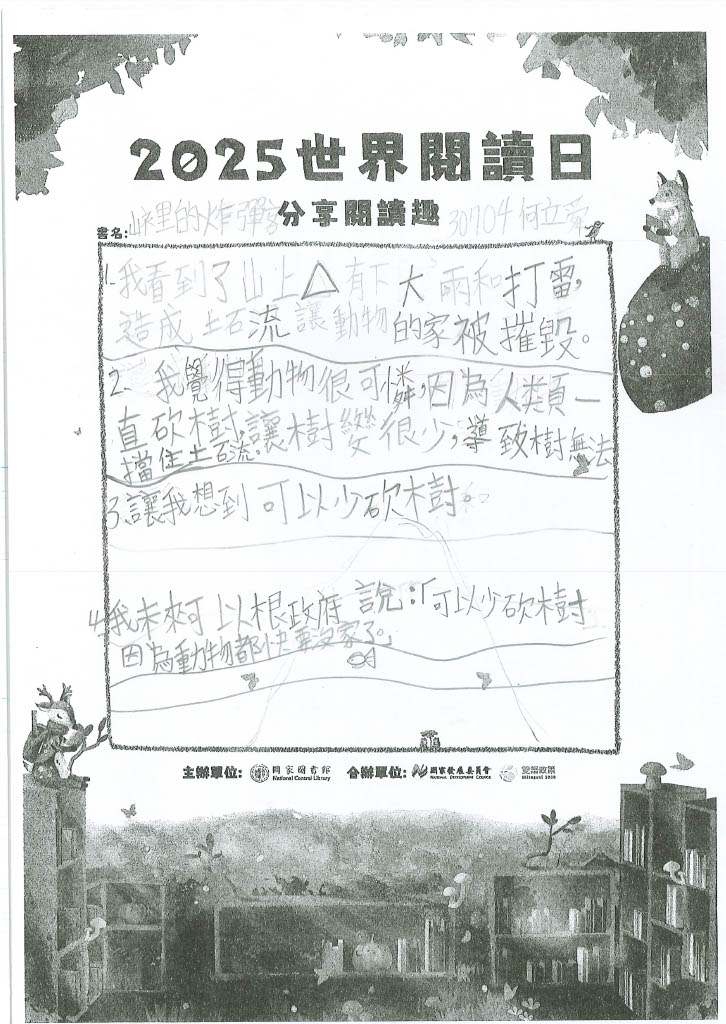 2025世界閱讀日
分享閱讀趣
書名:山豬里的炸彈客
30704 何立愛
1.我看到了山上 有下大雨和打雷,
造成土石流讓動物的家被摧毀。
2. 我覺得動物很可憐,因為人類一
直砍樹,讓樹變很少,導致樹無法
擋住土石流。
3.讓我想到可以少砍樹。
4.我未來可以根政府說:「可以少砍樹
因為動物都快要沒家了。」
主辦單位: 國家圖書館 National Central Library 合辦單位: 國家發展委員會 NATIONAL DEVELOPMENT COUNCIL 雙語政策 Bilingual 2030